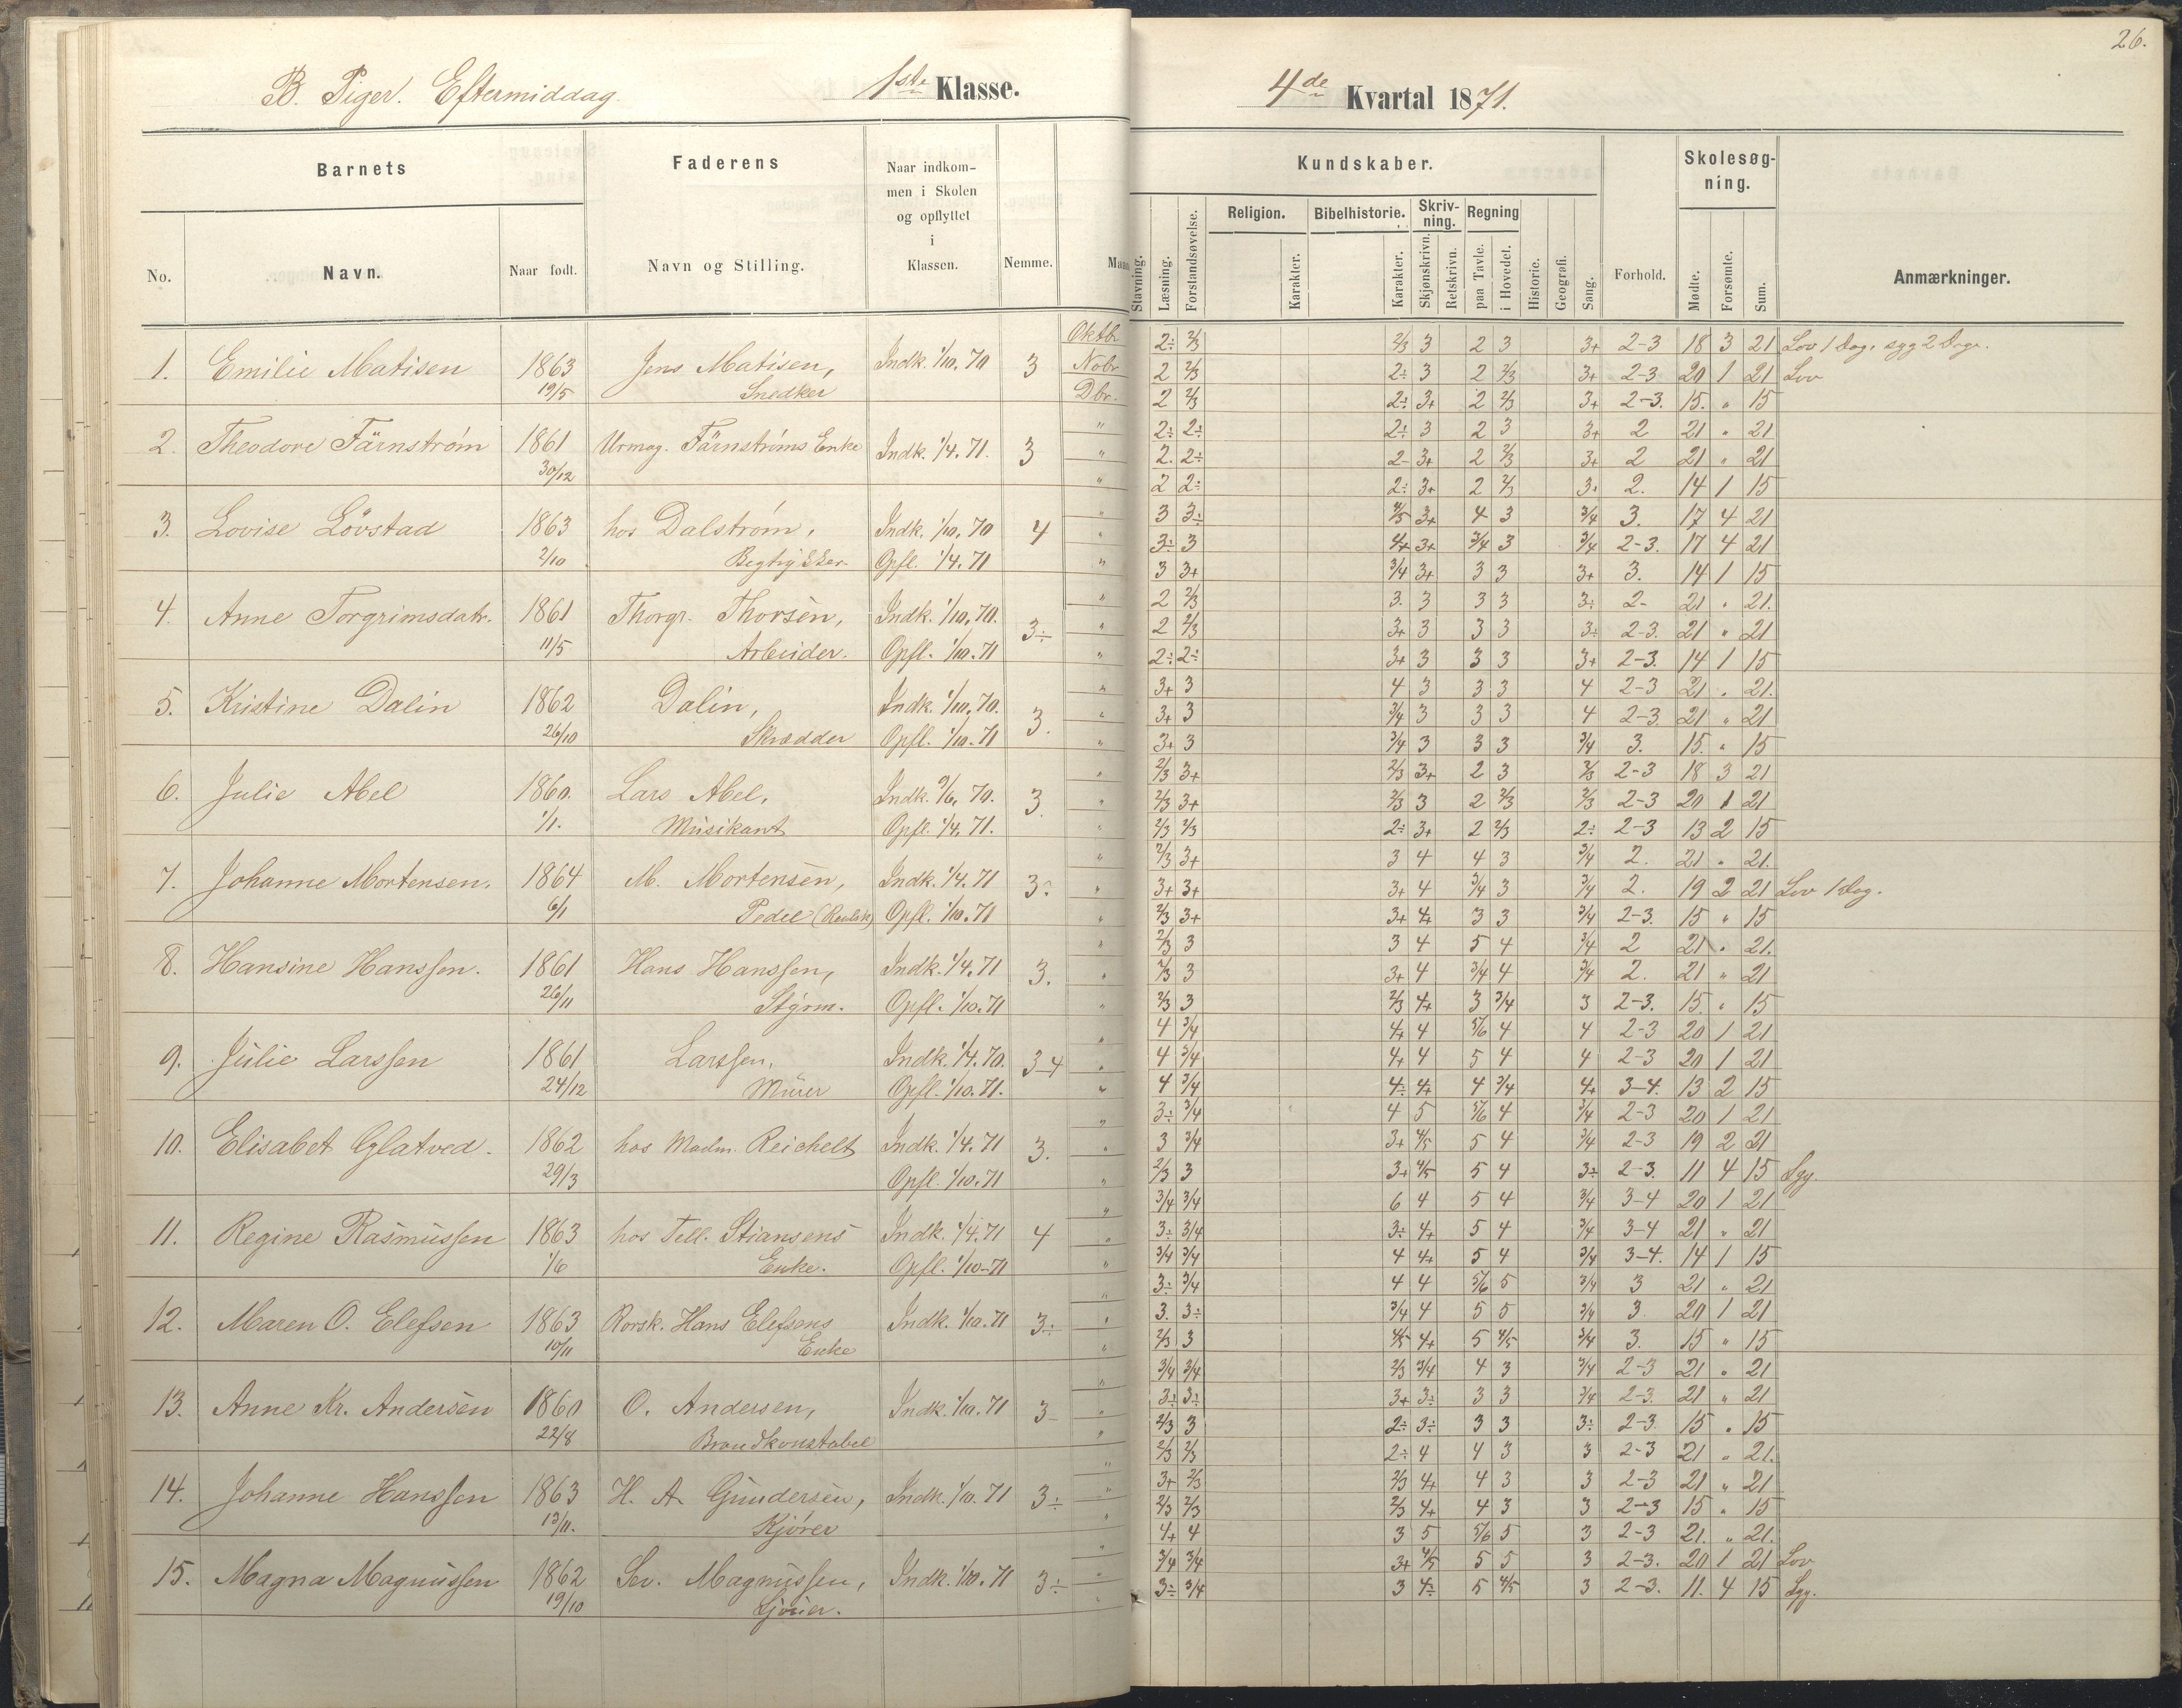 26.
B. Piger. Eftermiddag. 1ste Klasse. 4de Kvartal 1871.
Barnets Faderens Naar indkommen i Skolen og opflyttet i Klassen. Nemme. Kundskaber. Forhold. Skolesøgning. Anmærkninger.
No. Navn. Naar født. Navn og Stilling. Stavning. Læsning. Forstandsøvelse. Religion. Karakter. Bibelhistorie. Karakter. Skrivning. Skjønskrivn. Retskrivn. Regning paa Tavle. i Hovedet. Historie. Geografi. Sang. Mødte. Forsømte. Sum.
Oktbr 2÷ 2/3 2/3 3 2 3 3+ 2-3 18 3 21 Lov 1 Dag, syg 2 Dage.
1. Emilie Matisen 1863 Jens Matisen, Indk. 1/10. 70 3 Nobr 2 2/3 2÷ 3 2 2/3 3+ 2-3 20 1 21 Lov
19/5 Snedker Dbr. 2 2/3 2÷ 3+ 2 2/3 3+ 2-3. 15. " 15
" 2÷ 2÷ 2÷ 3 2 3 3+ 2 21 " 21
2. Theodore Färnstrøm 1861 Urmag. Färnstrøms Enke Indk. 1/4. 71. 3 " 2. 2÷ 2- 3+ 2 2/3 3+ 2 21 " 21
30/12 " 2 2÷ 2÷ 3+ 2 2/3 3+ 2. 14 1 15
" 3 3÷ 4/5 3+ 4 3 3/4 3. 17 4 21
3. Lovise Lövstad 1863 hos Dalstrøm, Indk. 1/10. 70 4 " 3÷ 3 4+ 3+ 3/4 3 3/4 2-3. 17 4 21
2/10 Opfl. 1/4. 71 " 3 3+ 3/4 3+ 3 3 3+ 3. 14 1 15
" 2 2/3 3. 3 3 3 3÷ 2- 21 " 21.
4. Anne Torgrimsdatr. 1861 Thorgr. Thorsen, Indk. 1/10. 70. 3÷ " 2 2/3 3+ 3 3 3 3÷ 2-3. 21 " 21
11/5 Arbeider. Opfl. 1/10. 71 " 2÷ 2÷ 3+ 3 3 3 3+ 2-3. 14 1 15
" 3+ 3 4 3 3 3 4 2-3 21 " 21.
5. Kristine Dalin 1862 Dalin, Indk. 1/10. 70. 3. " 3+ 3 3/4 3 3 3 4 2-3. 21 " 21
26/10 Skrædder Opfl. 1/10. 71 " 3+ 3 3/4 3 3 3 3/4 3. 15. " 15
" 2/3 3+ 2/3 3+ 2 3 2/3 2-3 18 3 21
6. Julie Abel 1860. Lars Abel, Indk. 9/6. 70. 3. " 2/3 3+ 2/3 3 2 2/3 2/3 2-3 20 1 21
1/1. Musikant Opfl. 1/4. 71. " 2/3 2/3 2÷ 3+ 2 2/3 2÷ 2-3 13 2 15
" 2/3 3+ 3 4 4 3 3/4 2. 21 " 21.
7. Johanne Mortensen. 1864 M. Mortensen, Indk. 1/4. 71 3÷ " 3+ 3+ 3+ 4 3/4 3 3/4 2. 19 2 21 Lov 1 Dag.
6/1 Pedel (Realsk) Opfl. 1/10. 71 " 2/3 3+ 3+ 4+ 3 3 3/4 2-3. 15 " 15
" 2/3 3 3 4 5 4 3/4 2 21 " 21.
8. Hansine Hanssen. 1861 Hans Hanssen, Indk. 1/4. 71 3. " 2/3 3 3+ 4 3/4 4 3/4 2. 21 " 21
26/11 Styrm. Opfl. 1/10. 71 " 2/3 3 2/3 4+ 3 3/4 3 2-3. 15. " 15
" 4 3/4 4+ 4 5/6 4 4 2-3 20 1 21
9. Julie Larssen 1861 Larssen, Indk. 1/4. 70. 3-4 " 4 3/4 4+ 4 5 4 4 2-3 20 1 21
24/12 Murer Opfl. 1/10. 71. " 4 3/4 4÷ 4+ 4 3/4 4+ 3-4. 13 2 15
" 3÷ 3/4 4 5 5/6 4 3/4 2-3 20 1 21
10. Elisabet Glatved. 1862 hos Madm. Reichelt Indk. 1/4. 71 3. " 3 3/4 3+ 4/5 5 4 3/4 2-3 19 2 21
29/3 Opfl. 1/10. 71 " 2/3 3 3+ 4/5 5 4 3÷ 2-3. 11 4 15 Syg.
" 3/4 3/4 6 4 5 4 3/4 3-4 20 1 21
11. Regine Rasmussen 1863 hos Tell. Stiansens Indk. 1/4. 71 4 " 3÷ 3/4 3÷ 4+ 5 4 3/4 3-4 21 " 21
1/6 Enke. Opfl. 1/10-71 " 3/4 3/4 4 4+ 5 4 3/4 3-4. 14 1 15
" 3÷ 3/4 4 4 5/6 5 3/4 3 21 " 21
12. Maren O. Elefsen 1863 Rorsk. Hans Elefsens Indk. 1/10. 71 3÷ " 3. 3÷ 3/4 4 5 5 3/4 3. 20 1 21
10/11 Enke " 2/3 3 4/5 4+ 5 4/5 3/4 3. 15 " 15
" 3/4 3/4 2/3 3/4 4 3 3/4 2-3 21 " 21
13. Anne Kr. Andersen 1860 O. Andersen, Indk. 1/10. 71 3- " 3÷ 3÷ 3+ 3÷ 3 3 3/4 2-3. 21 " 21
22/8 Brandkonstabel " 2/3 3 2÷ 3÷ 3 3 3÷ 2-3 15 " 15
" 2/3 2/3 2÷ 4 4 3 3 2-3 21 " 21.
14. Johanne Hanssen 1863 H. A. Gundersen, Indk. 1/10. 71 3÷ " 3+ 2/3 2/3 4+ 4 3 3 2-3 21 " 21
13/11. Kjører " 2/3 2/3 2/3 4+ 4 3 3 2-3 15 " 15
" 4+ 4 3 5 5/6 5 3 2-3 21. " 21.
15. Magna Magnussen 1862 Sev. Magnussen, Indk. 1/10. 71 3÷ " 3/4 3/4 3+ 4/5 5 5 3 2-3. 20 1 21 Lov
19/10 " 3÷ 3/4 3 4÷ 5 4/5 3 2-3. 11. 4 15 Syg.